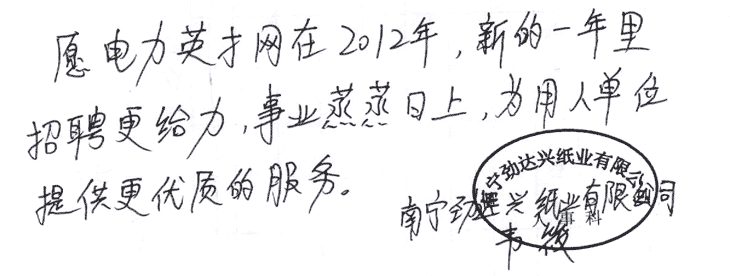 愿电力英才网在2012年，新的一年里
招聘更给力，事业蒸蒸日上，为用人单位
提供更优质的服务。
宁劲达兴纸业有限公
南宁劲达兴纸业有限公司
事科
韦